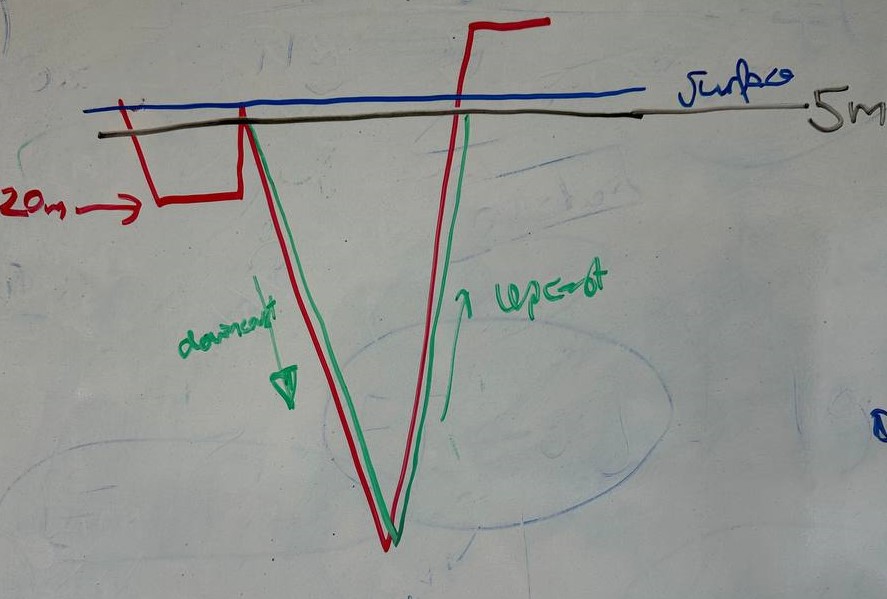 Surface
5m
20m
downcast
upcast